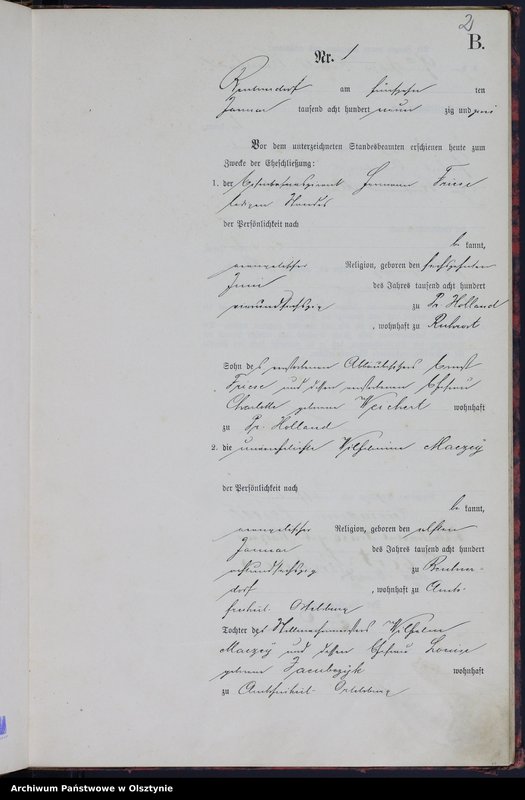 2
B.
Nr. 1
am fünfzehn ten
Januar tausend acht hundert neun zig und zwei
Vor dem unterzeichneten Standesbeamten erschienen heute zum
Zwecke der Eheschließung:
1. der Hermann Friese
ledigen Standes
der Persönlichkeit nach
be kannt,
evangelischer Religion, geboren den sechszehnten
Juni des Jahres tausend acht hundert
vierundsechszig zu Pr. Holland
, wohnhaft zu
Sohn des verstorbenen Ernst
Friese und dessen verstorbenen Ehefrau
Charlotte geborene Weichert wohnhaft
zu Pr. Holland
2. die unverehelichte Wilhelmine Maczey
der Persönlichkeit nach
be kannt,
evangelischer Religion, geboren den elften
Januar des Jahres tausend acht hundert
achtundsechszig zu
dorf , wohnhaft zu Amts-
freiheit Ortelsburg
Tochter des Stellmachermeisters Wilhelm
Maczey und dessen Ehefrau Louise
geborene Jacubczyk wohnhaft
zu Amtsfreiheit Ortelsburg
Archiwum Państwowe w Olsztynie